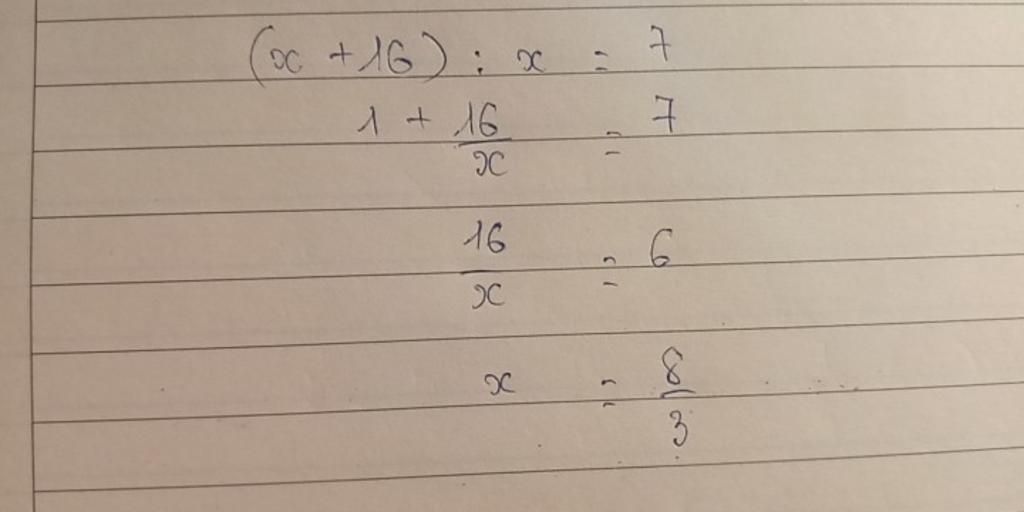 (x + 16) : x = 7
1 + 16/x = 7
16/x = 6
x = 8/3